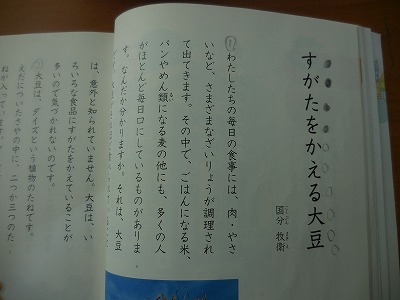 すがたをかえる大豆
国分 牧衛
こくぶ まきえ
① わたしたちの毎日の食事には、肉・やさ
いなど、さまざまなざいりょうが調理され
て出てきます。その中で、ごはんになる米、
パンやめん類になる麦の他にも、多くの人
がほとんど毎日口にしているものがありま
す。なんだか分かりますか。それは、大豆
は、意外と知られていません。大豆は、い
ろいろな食品にすがたをかえていることが
多いので気づかれないのです。
② 大豆は、ダイズという植物のたねです。
えだについたさやの中に、二つか三つのた
ねが入って